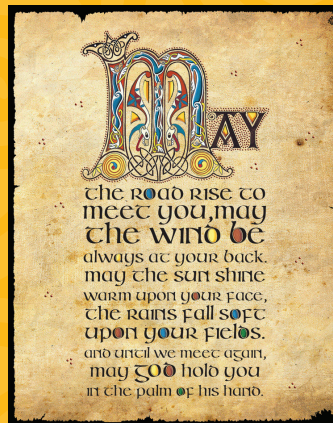 May
the road rise to
meet you, may
the wind be
always at your back.
may the sun shine
warm upon your face,
the rains fall soft
upon your fields.
and until we meet again,
may God hold you
in the palm of his hand.